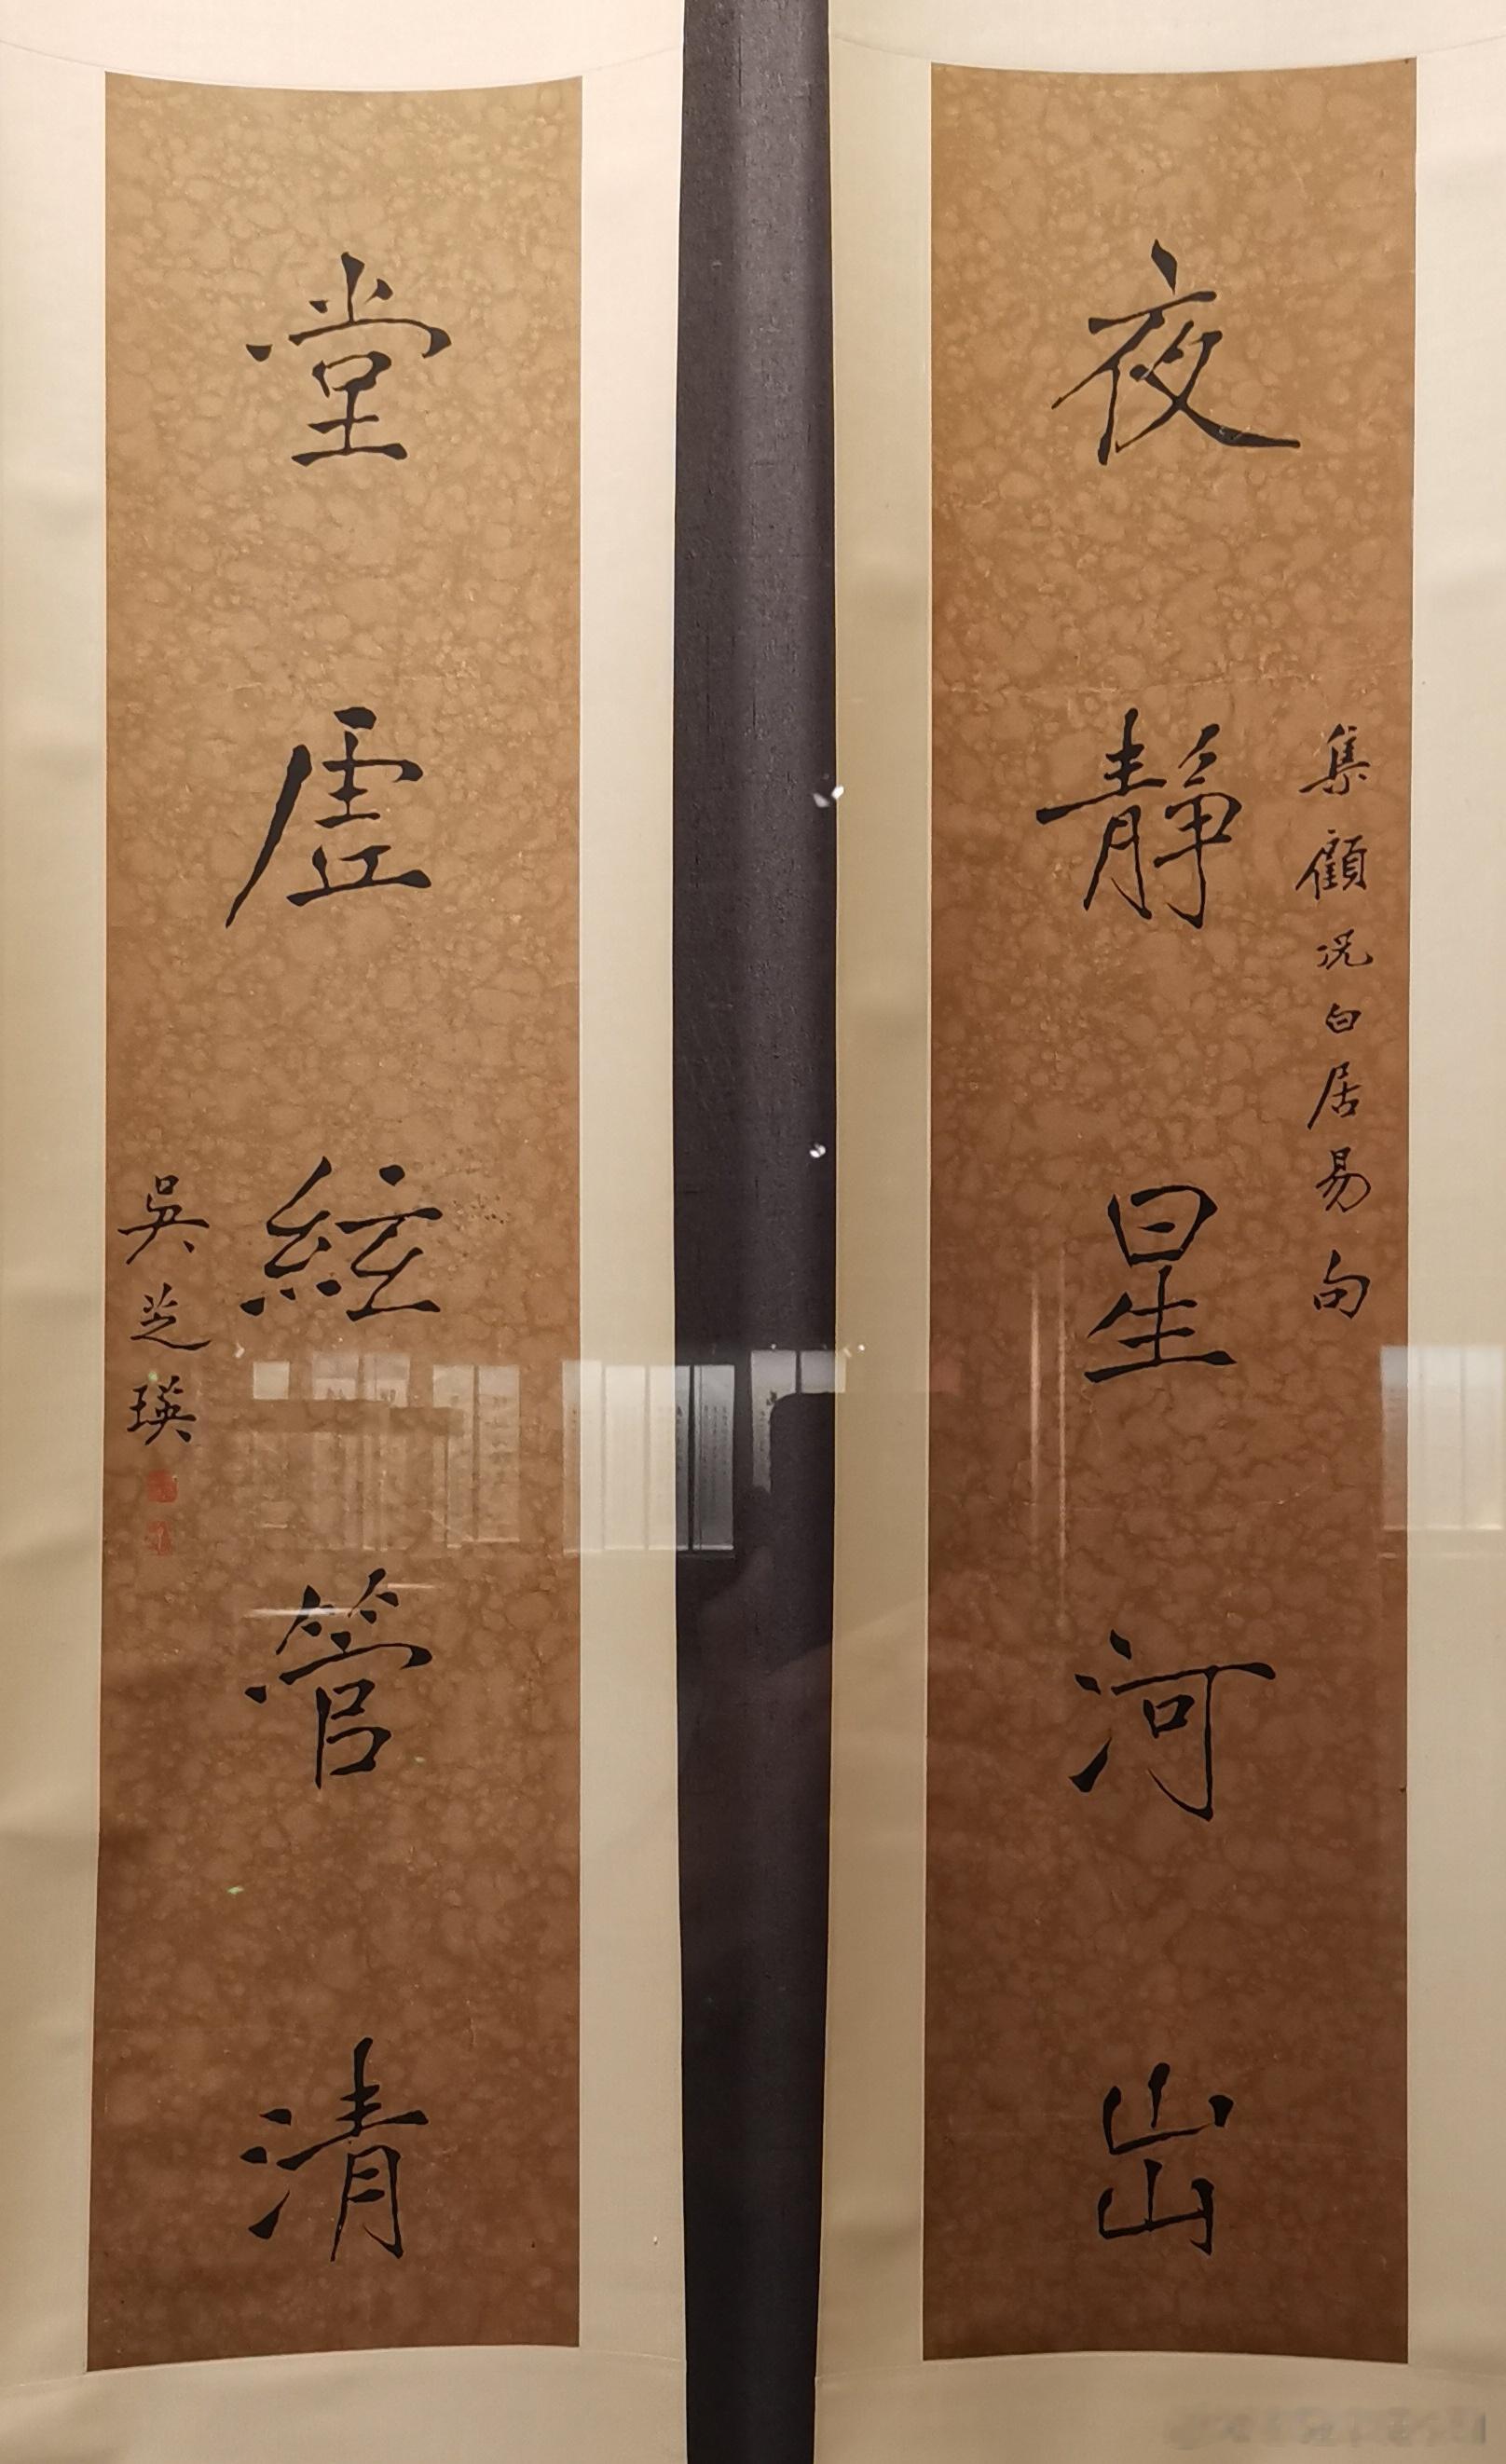 夜静星河出
集顧况白居易句
堂虚絃管清
吳芝瑛